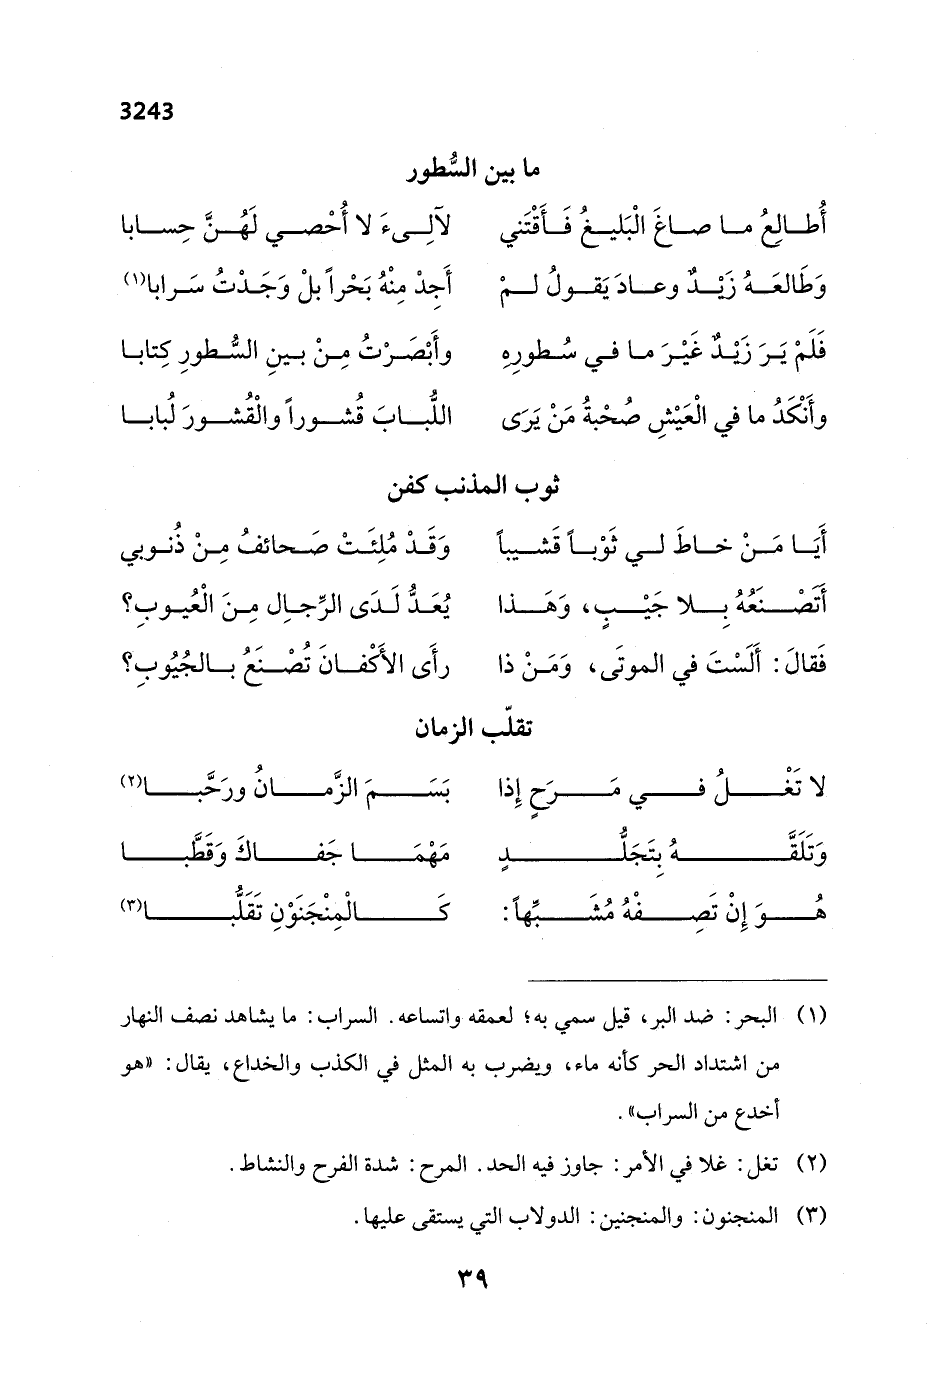 3243
ما بين السُّطور
أُطالِعُ ما صاغَ الْبَليغُ فَأَقْتَني لآلِىءَ لا أُحْصي لَهُنَّ حِسابا
وَطَالَعَهُ زَيْدٌ وعادَ يَقولُ لمْ أَجِدْ مِنْهُ بَحْراً بلْ وَجَدْتُ سَرابا(١)
فَلَمْ يَرَ زَيْدٌ غَيْرَ ما في سُطورِهِ وأَبْصَرْتُ مِنْ بينِ السُّطورِ كِتابا
وأَنْكَدُ ما في الْعَيْشِ صُحْبةُ مَنْ يَرَى اللُّبابَ قُشوراً والْقُشورَ لُبابا
ثوب المذنب كفن
أَيَا مَنْ خاطَ لي ثَوْباً قَشيباً وَقَدْ مُلِئَتْ صَحائفُ مِنْ ذُنوبي
أَتَصْنَعُهُ بِلا جَيْبٍ، وَهَذا يُعَدُّ لَدَى الرِّجالِ مِنَ الْعُيوبِ؟
فَقالَ: أَلَسْتَ في الموتَى، وَمَنْ ذا رأى الأَكْفانَ تُصْنَعُ بالجُيُوبِ؟
تقلّب الزمان
لا تَغْلُ في مَرَحٍ إذا بَسَمَ الزَّمانُ ورَحَّبا(٢)
وَتَلَقَّهُ بِتَجَلُّدٍ مَهْمَا جَفاكَ وَقَطَّبا
هُوَ إنْ تَصِفْهُ مُشَبِّهاً: كَالْمِنْجَنَوْنِ تَقَلُّبا(٣)
(١) البحر: ضد البر، قيل سمي به؛ لعمقه واتساعه. السراب: ما يشاهد نصف النهار
من اشتداد الحر كأنه ماء، ويضرب به المثل في الكذب والخداع، يقال: «هو
أخدع من السراب».
(٢) تغل: غلا في الأمر: جاوز فيه الحد. المرح: شدة الفرح والنشاط.
(٣) المنجنون: والمنجنين: الدولاب التي يستقى عليها.
٣٩